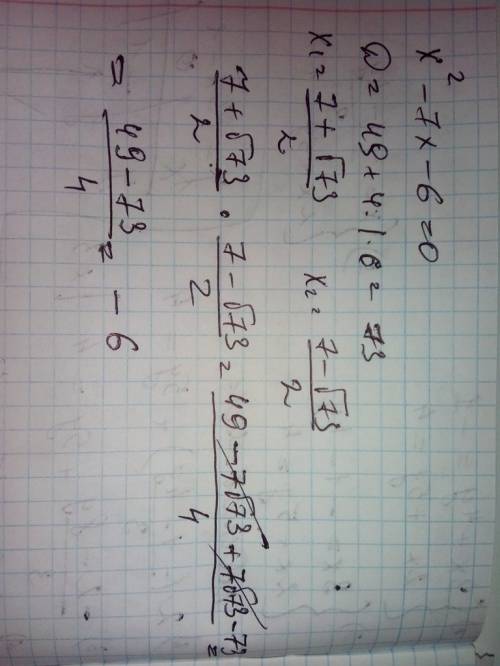 x² - 7x - 6 = 0
D = 49 + 4·1·6 = 73
x₁ = (7 + √73)/2    x₂ = (7 - √73)/2
(7 + √73)/2 · (7 - √73)/2 = (49 - 7√73 + 7√73 - 73)/4 =
= (49 - 73)/4 = - 6